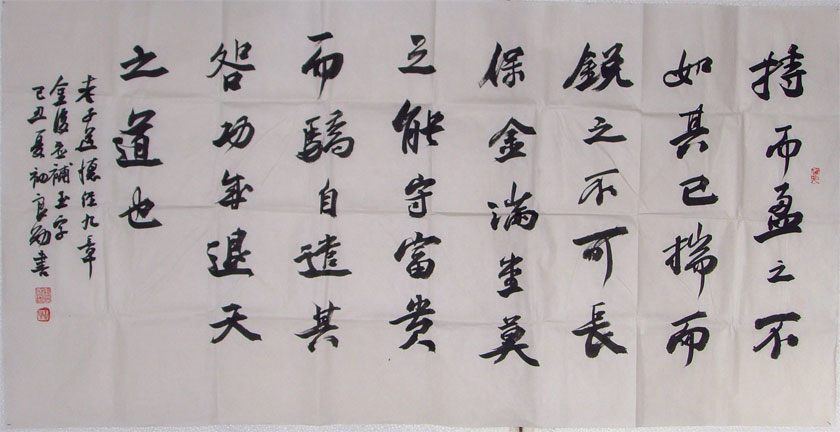 持而盈之不
如其已揣而
銳之不可長
保金滿堂莫
之能守富貴
而驕自遺其
咎功成退天
之道也
老子道德經九章
金後補玉字
己丑夏初良書